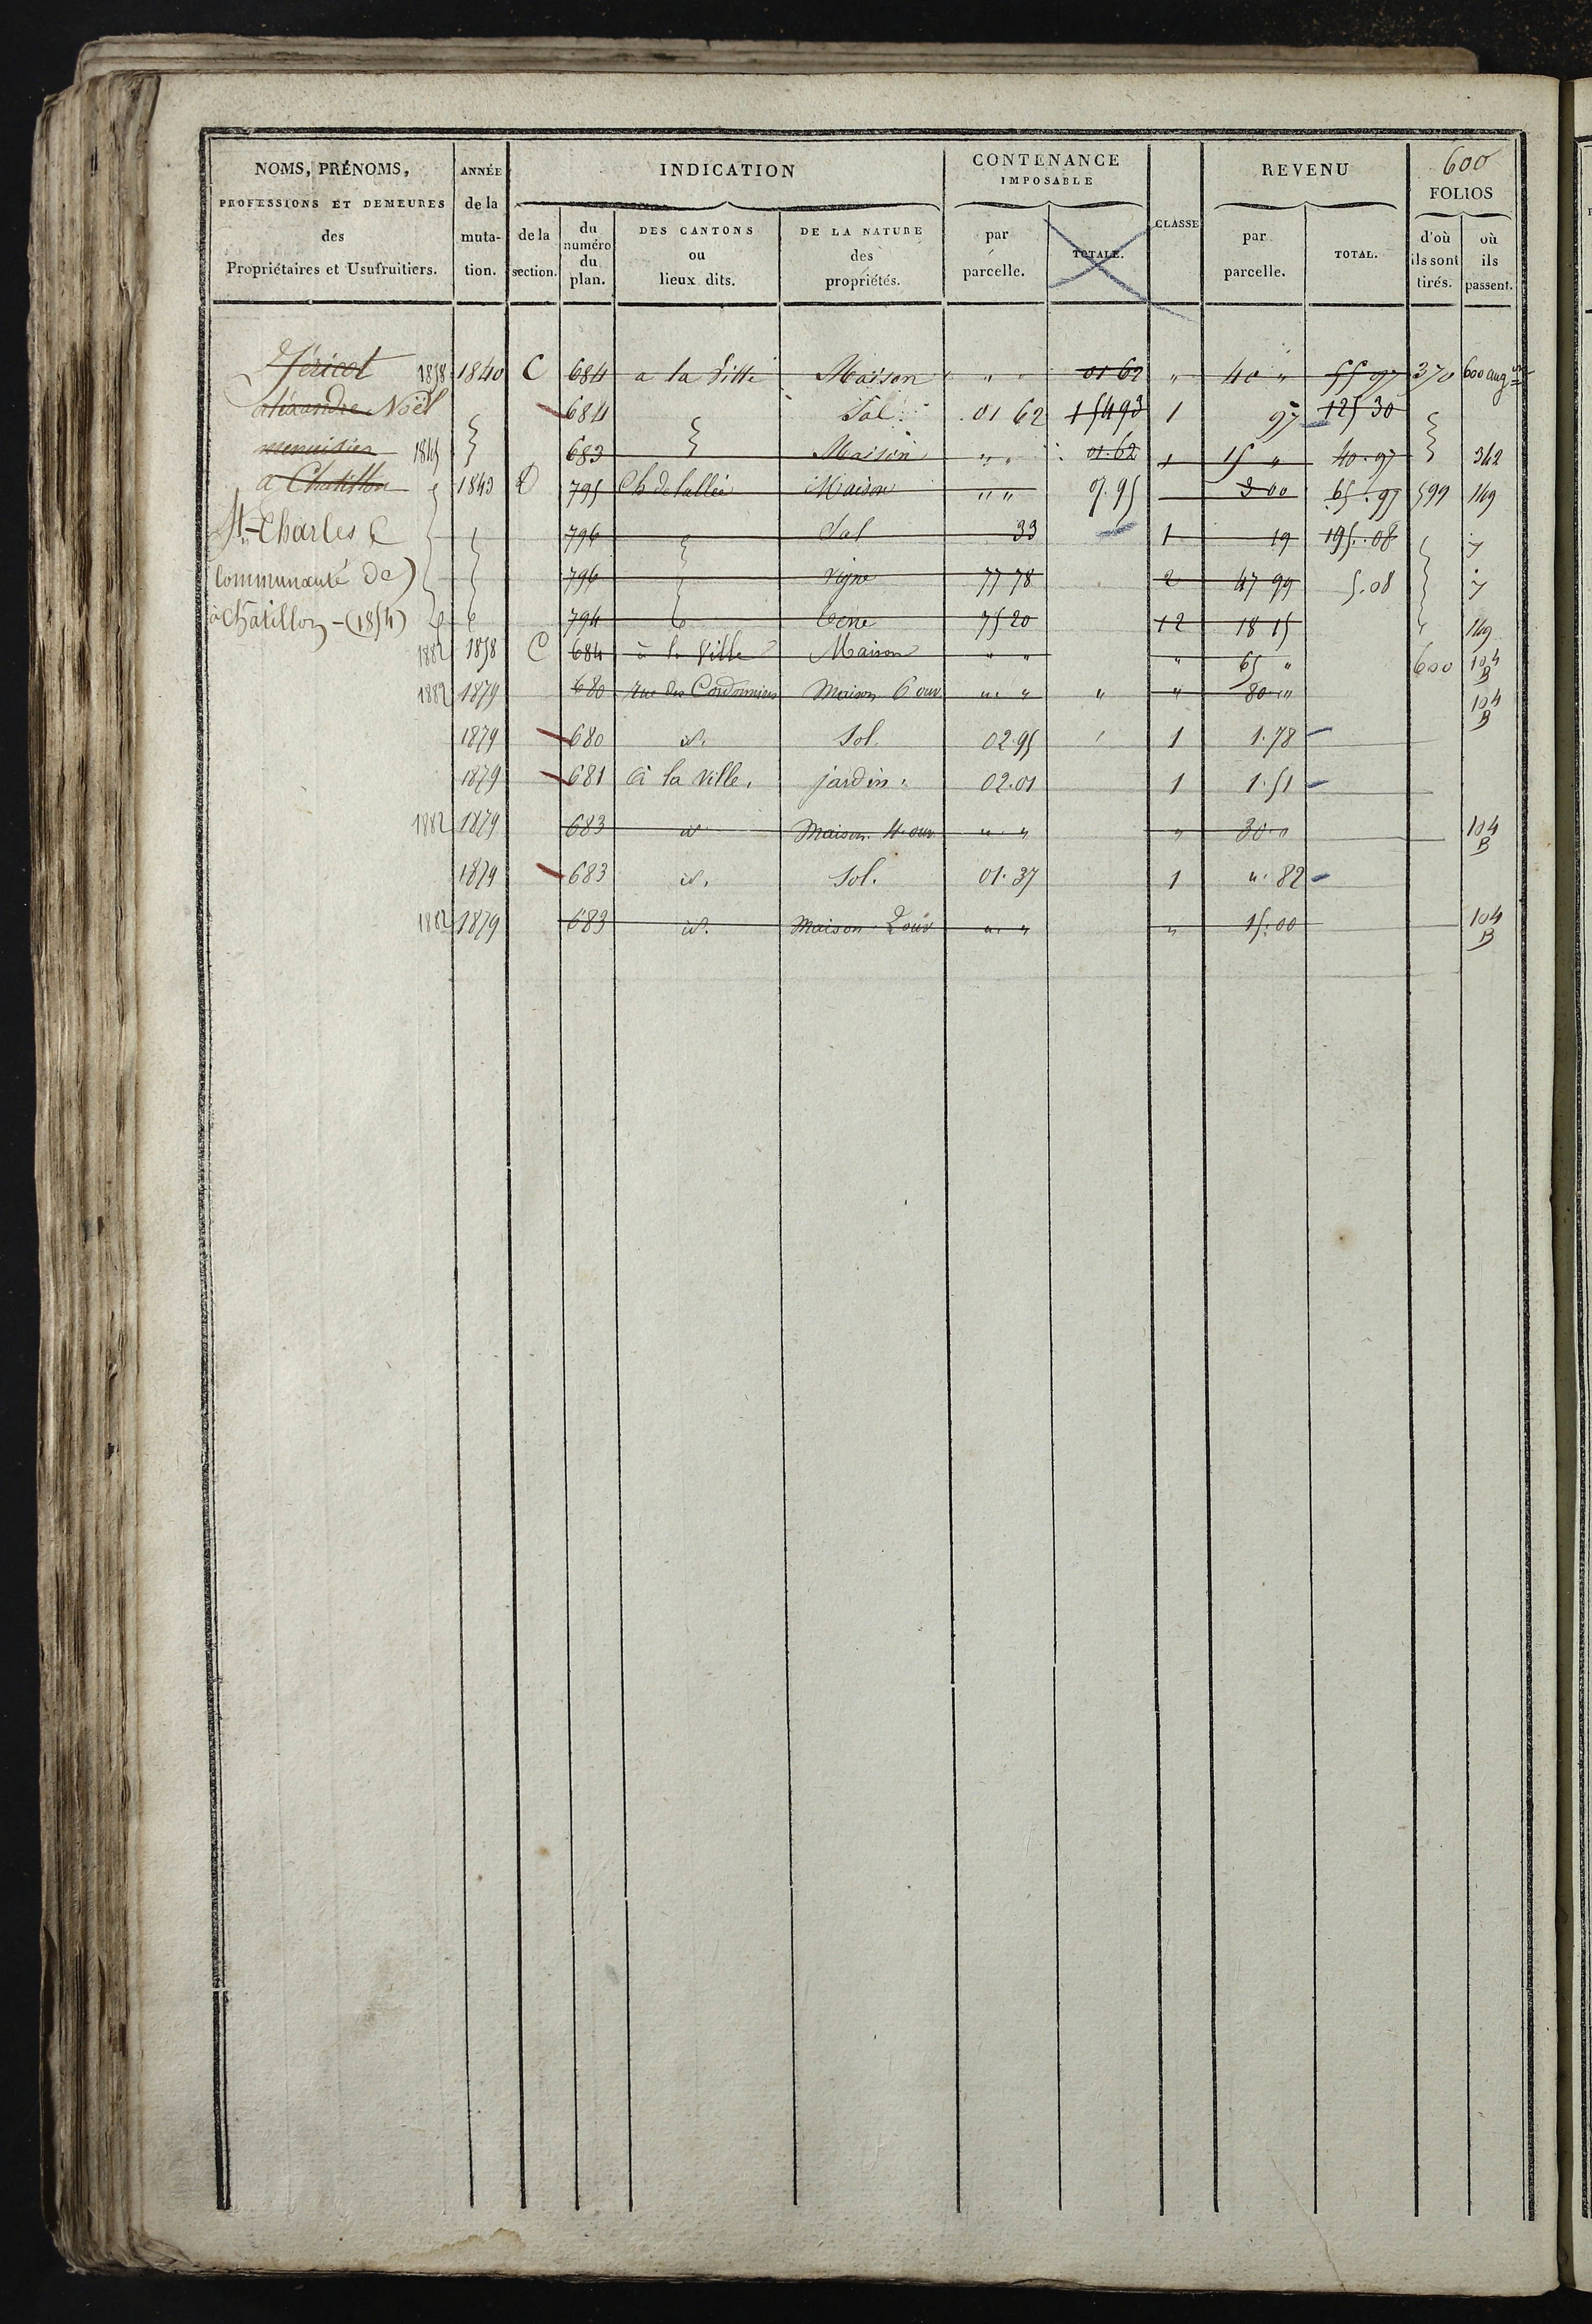 600
NOMS, PRÉNOMS, PROFESSIONS ET DEMEURES des Propriétaires et Usufruitiers. | ANNÉE de la muta- tion. | INDICATION | CONTENANCE IMPOSABLE | CLASSE | REVENU | FOLIOS
de la section. | du numéro du plan. | DES CANTONS ou lieux dits. | DE LA NATURE des propriétés. | par parcelle. | TOTALE. | par parcelle. | TOTAL. | d'où ils sont tirés. | où ils passent.
1858 1840 C 684 a la Ville Maison " " 01 62 " 40 " 55 97 370 600 aug
Noël 684 Sol 01 62 1 54 93 1 97 125 30
menuisier 1845 683 Maison " " 01.62 15 " 40.97 342
a Chatillon 1843 D 795 Maison " " 07.95 3 00 65.97 599 149
St-Charles 796 Sol 33 1 19 195.08 7
(Communauté de) 796 Vigne 77 78 2 47 99 5.08 7
à Châtillon - (1854) 794 75 20 12 18 15 149
1882 1858 C 684 à la Ville Maison " " " 65 " 600 104 B
1882 1879 680 rue des Cordonniers Maison 6 ouv ". " " " 80 " 104 B
1879 680 id. Sol. 02.95 1 1.78
1879 681 à la Ville. jardin. 02.01 1 1.51
1882 1879 683 id Maison 4. ouv ". " " 30 " 104 B
1879 683 id. Sol. 01.37 1 ". 82
1882 1879 683 id. Maison 2 ouv ". " " 15.00 104 B